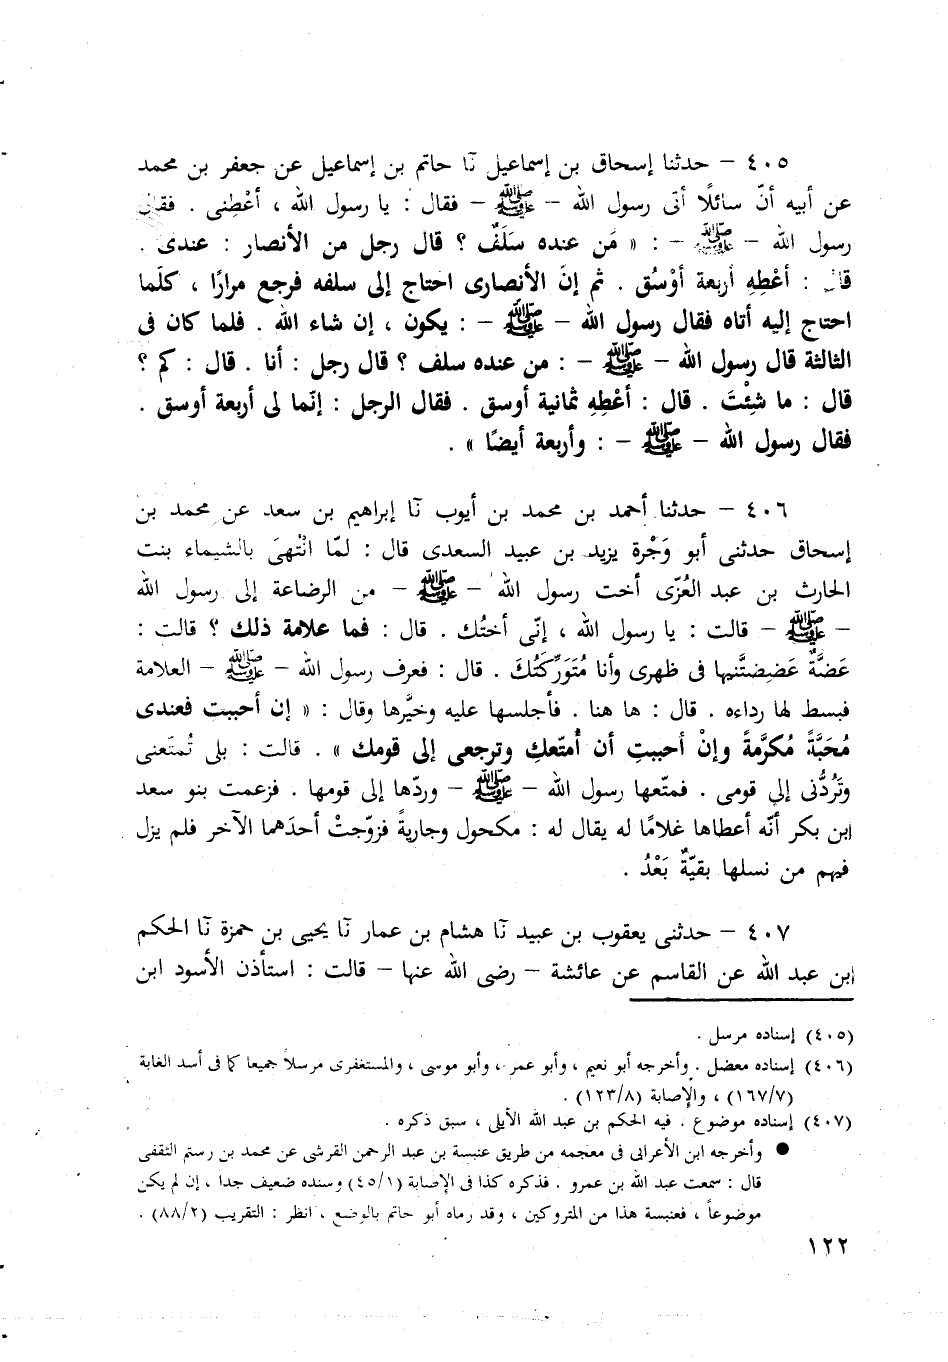 ٤٠٥ – حدثنا إسحاق بن إسماعيل نَا حاتم بن إسماعيل عن جعفر بن محمد
عن أبيه أنّ سائلًا أتى رسول الله – ﷺ – فقال : يا رسول الله ، أعْطِنى . فقال
رسول الله – ﷺ – : « مَن عنده سَلَفٌ ؟ قال رجل من الأنصار : عندى .
قال : أعْطِهِ أربعة أوْسُق . ثم إنّ الأنصارى احتاج إلى سلفه فرجع مرارًا ، كلّما
احتاج إليه أتاه فقال رسول الله – ﷺ – : يكون ، إن شاء الله . فلما كان فى
الثالثة قال رسول الله – ﷺ – : من عنده سلف ؟ قال رجل : أنا . قال : كم ؟
قال : ما شِئْتَ . قال : أعْطِهِ ثمانية أوسق . فقال الرجل : إنّما لى أربعة أوسق .
فقال رسول الله – ﷺ – : وأربعة أيضًا » .
٤٠٦ – حدثنا أحمد بن محمد بن أيوب نَا إبراهيم بن سعد عن محمد بن
إسحاق حدثنى أبو وَجْرة يزيد بن عبيد السعدى قال : لمّا انْتُهىَ بالشيماء بنت
الحارث بن عبد العُزّى أخت رسول الله – ﷺ – من الرضاعة إلى رسول الله
– ﷺ – قالت : يا رسول الله ، إنّى أختُك . قال : فما علامة ذلك ؟ قالت :
عَضَّةٌ عَضِضتَّنِيها فى ظهرى وأنا مُتَوَرِّكَتُكَ . قال : فعرف رسول الله – ﷺ – العلامة
فبسط لها رداءه . قال : ها هنا . فأجلسها عليه وخيَّرها وقال : « إن أحببت فعندى
مُحَبَّةً مُكرَّمةً وإنْ أحببتِ أن أُمتّعكِ وترجعى إلى قومك » . قالت : بلى تُمتّعنى
وتَرُدُّنى إلى قومى . فمتّعها رسول الله – ﷺ – وردّها إلى قومها . فزعمت بنو سعد
ابن بكر أنّه أعطاها غلامًا له يقال له : مكحول وجاريةً فزوّجتْ أحدَهما الآخر فلم يزل
فيهم من نسلها بقيّةٌ بَعْدُ .
٤٠٧ – حدثنى يعقوب بن عبيد نَا هشام بن عمار نَا يحيى بن حمزة نَا الحكم
ابن عبد الله عن القاسم عن عائشة – رضى الله عنها – قالت : استأذن الأسود ابن
(٤٠٥) إسناده مرسل .
(٤٠٦) إسناده معضل . وأخرجه أبو نعيم ، وأبو عمر ، وأبو موسى ، والمستغفرى مرسلاً جميعا كما فى أسد الغابة
(١٦٧/٧) ، والإصابة (١٢٣/٨) .
(٤٠٧) إسناده موضوع . فيه الحكم بن عبد الله الأيلى ، سبق ذكره .
● وأخرجه ابن الأعرابى فى معجمه من طريق عنبسة بن عبد الرحمن القرشى عن محمد بن رستم الثقفى
قال : سمعت عبد الله بن عمرو . فذكره كذا فى الإصابة (٤٥/١) وسنده ضعيف جدا ، إن لم يكن
موضوعاً ، فعنبسة هذا من المتروكين ، وقد رماه أبو حاتم بالوضع ، انظر : التقريب (٨٨/٢) .
١٢٢